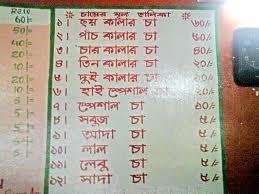 Rate
60/=
50/=
40/=
চায়ের মূল্য তালিকা
১। ছয় কালার চা ৬০/-
২। পাঁচ কালার চা ৫০/-
৩। চার কালার চা ৪০/-
৪। তিন কালার চা ২০/-
৫। দুই কালার চা
৬। হাই স্পেশাল চা
৭। স্পেশাল চা
৮। সবুজ চা ৫/-
৯। আদা চা ৫/-
১০। লাল চা ৫/-
১১। লেবু চা ৫/-
১২। সাদা চা ৫/-